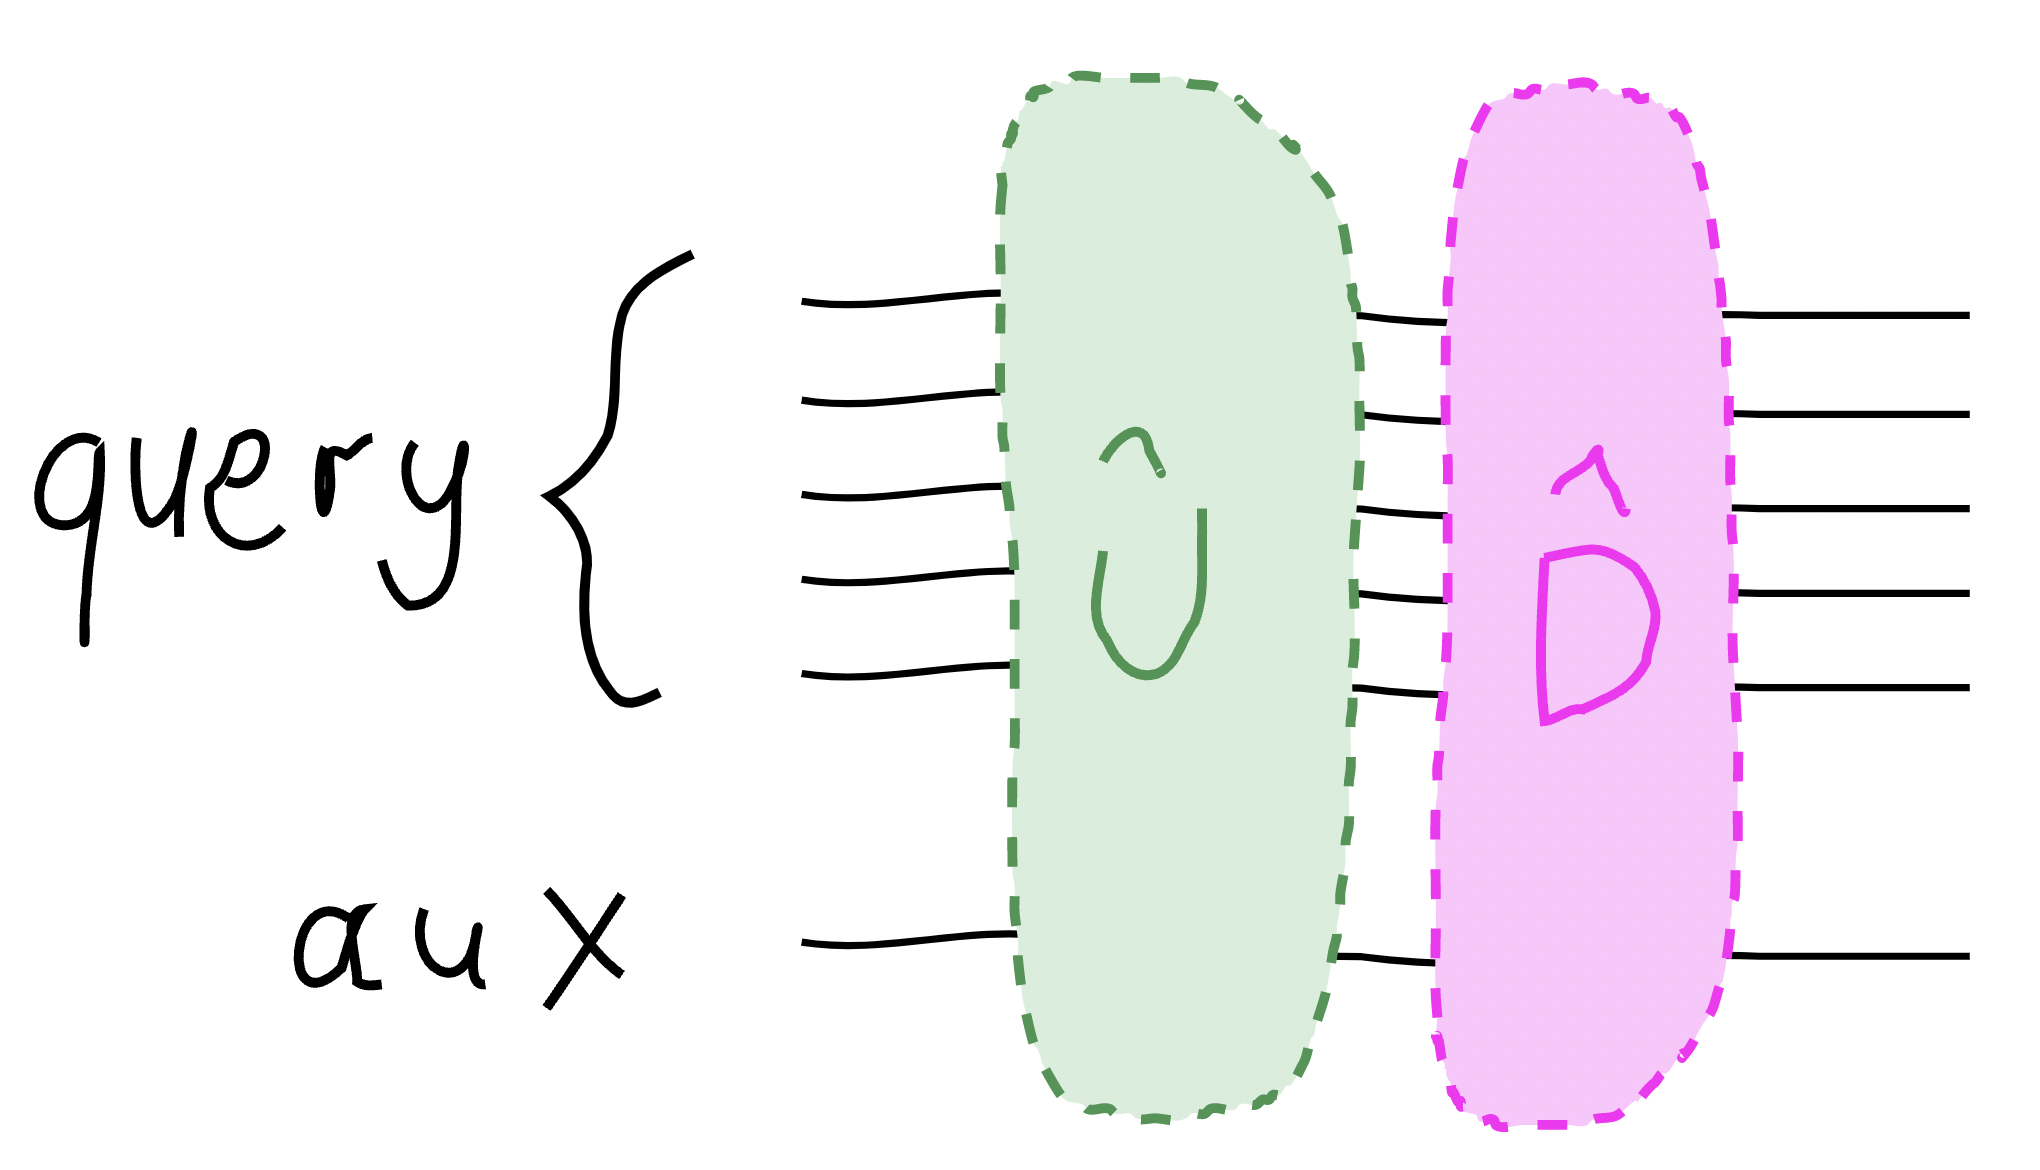 query
aux
Û
D̂